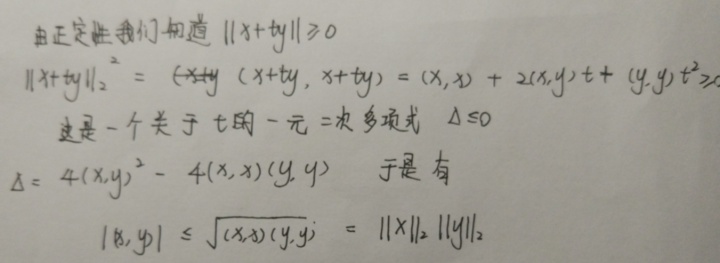 由正定性我们知道 ||x+ty||≥0
||x+ty||₂² = (x+ty, x+ty) = (x,x) + 2(x,y)t + (y,y)t²≥0
这是一个关于t的一元二次多项式 Δ≤0
Δ= 4(x,y)² - 4(x,x)(y,y) 于是有
|(x,y)| ≤ √(x,x)(y,y) = ||x||₂ ||y||₂